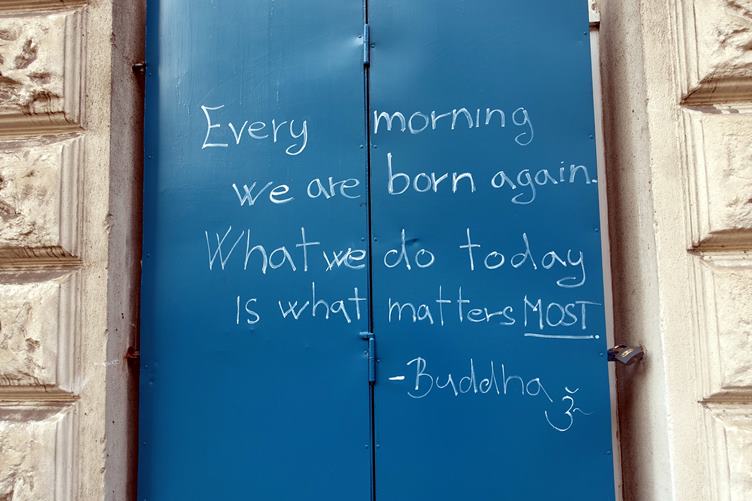 Every morning
we are born again.
What we do today
Is what matters MOST.
-Buddha
ॐ